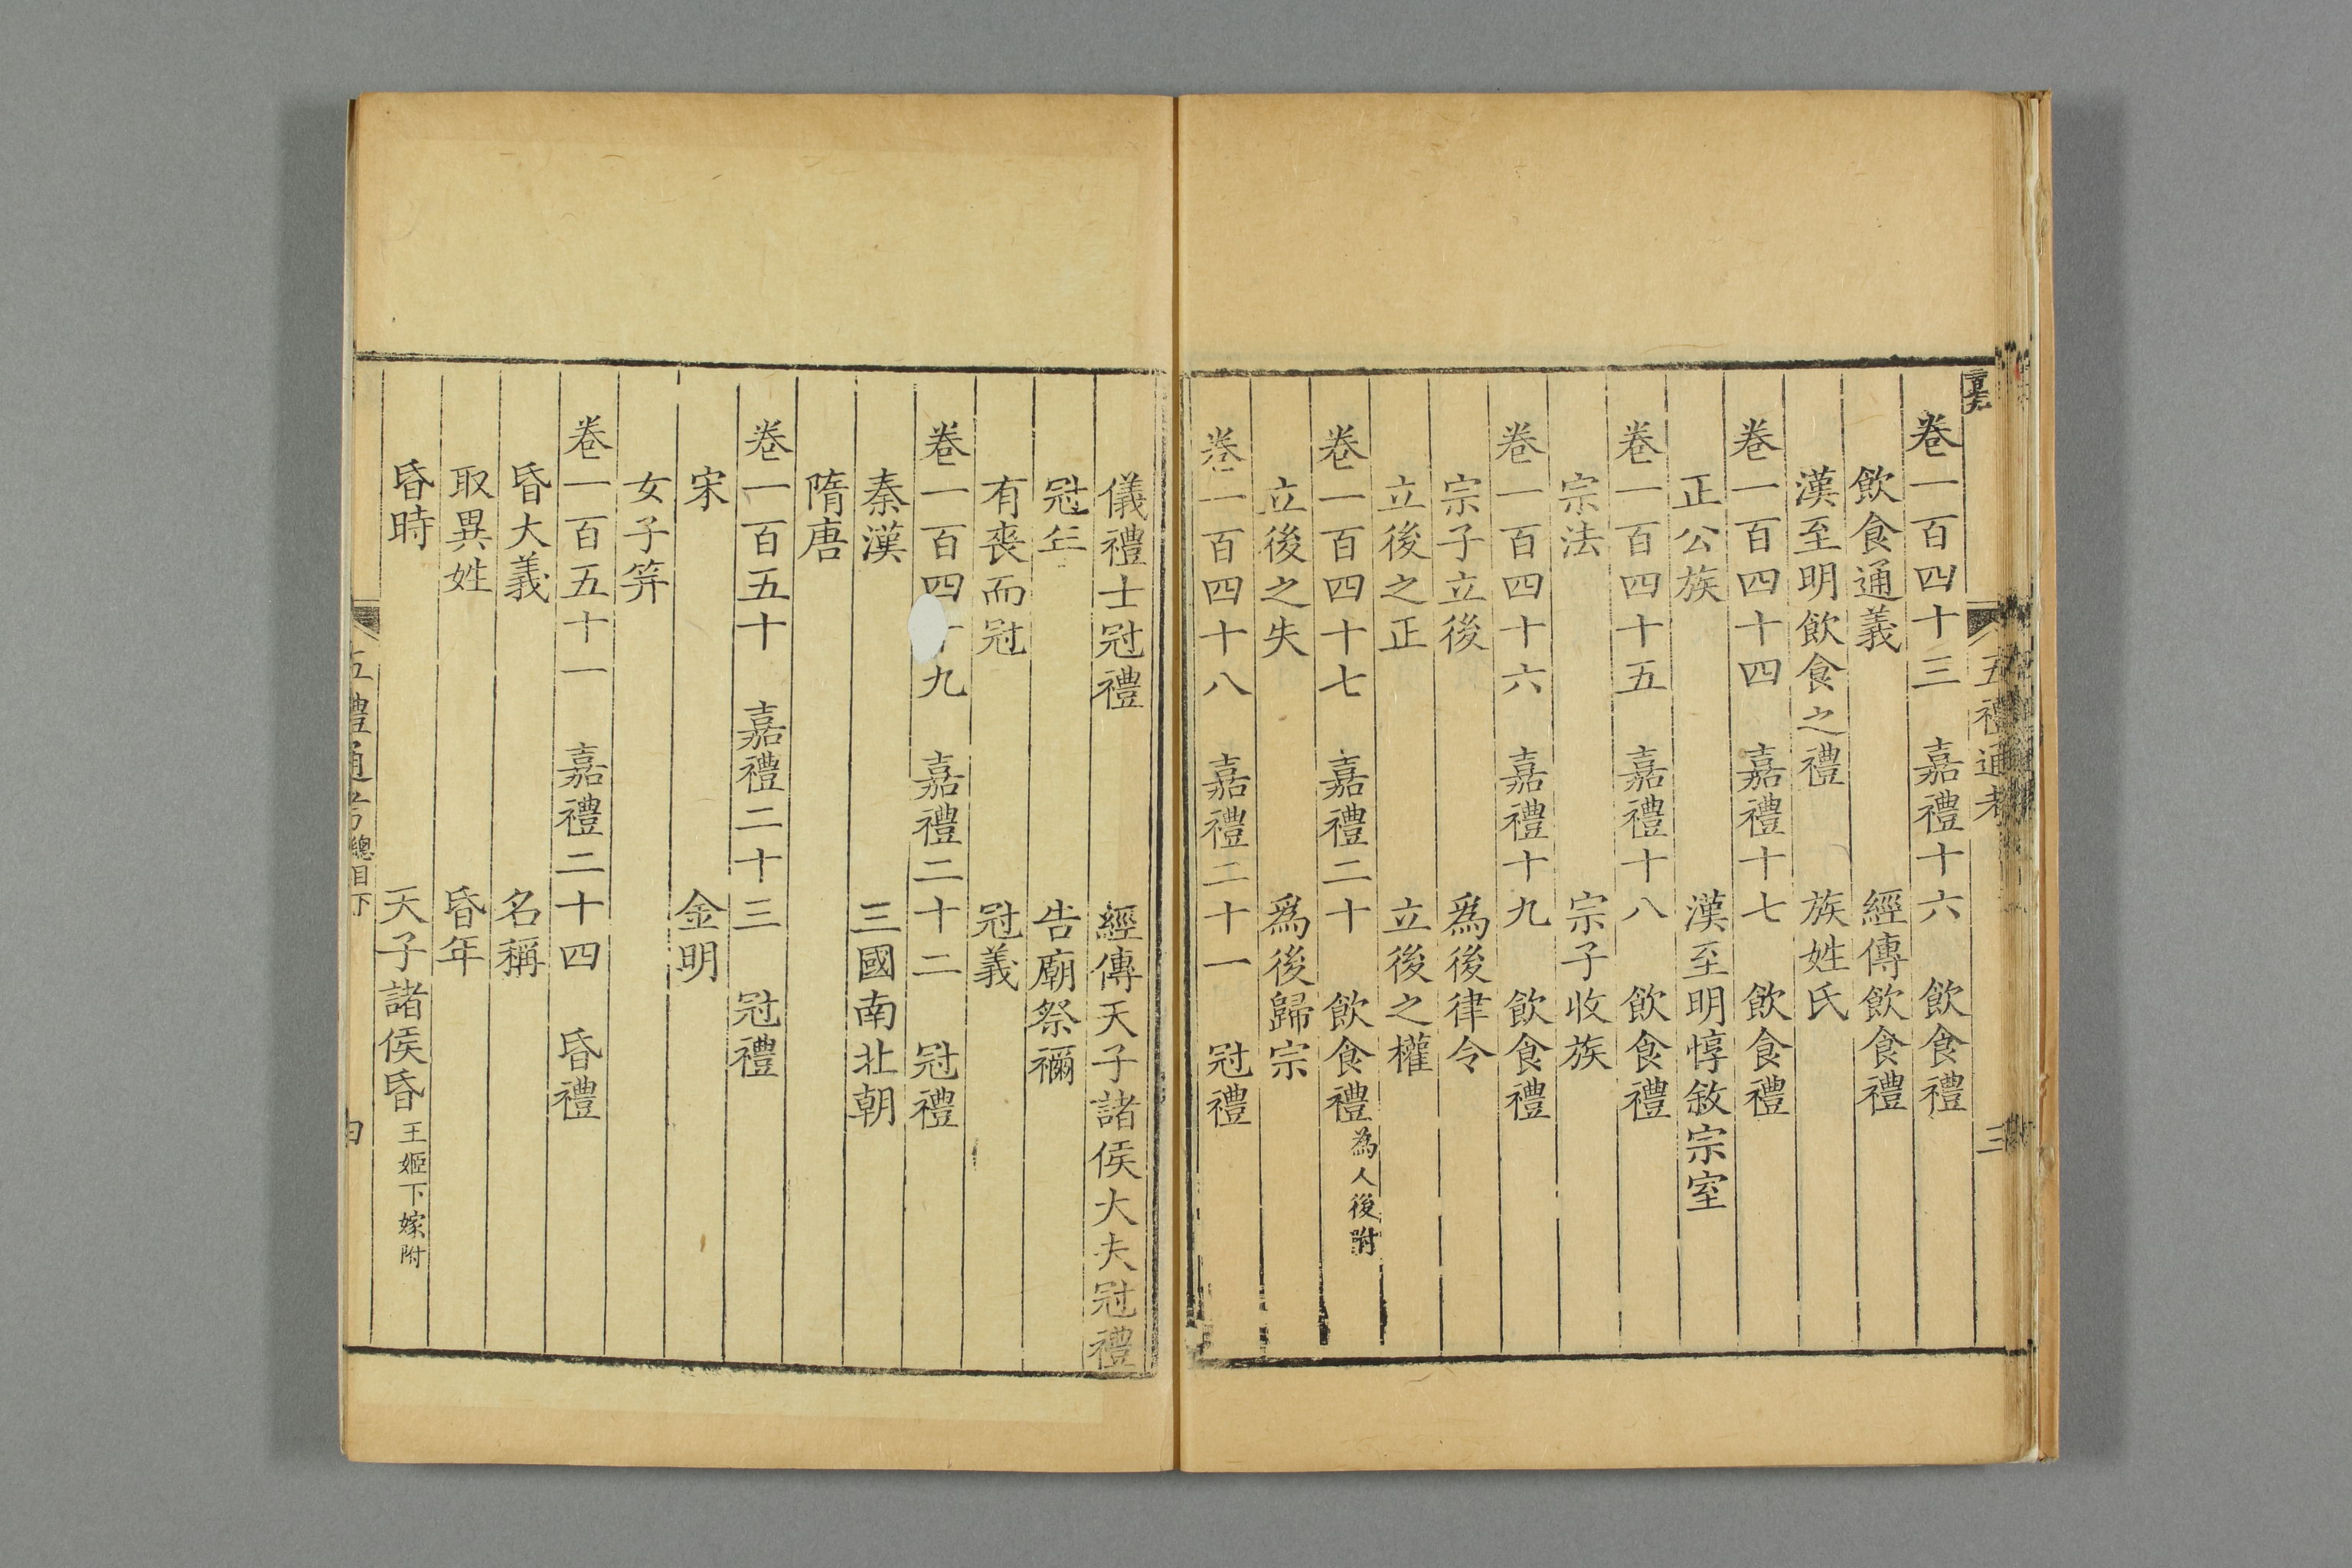 五禮通考
三
卷一百四十三　嘉禮十六　飲食禮
飲食通義　經傳飲食禮
漢至明飲食之禮　族姓氏
卷一百四十四　嘉禮十七　飲食禮
正公族　漢至明惇敘宗室
卷一百四十五　嘉禮十八　飲食禮
宗法　宗子收族
卷一百四十六　嘉禮十九　飲食禮
宗子立後　爲後律令
立後之正　立後之權
卷一百四十七　嘉禮二十　飲食禮為人後附
立後之失　爲後歸宗
卷一百四十八　嘉禮二十一　冠禮
儀禮士冠禮　經傳天子諸侯大夫冠禮
冠年　告廟祭禰
有喪而冠　冠義
卷一百四十九　嘉禮二十二　冠禮
秦漢　三國南北朝
隋唐
卷一百五十　嘉禮二十三　冠禮
宋　金明
女子笄
卷一百五十一　嘉禮二十四　昏禮
昏大義　名稱
取異姓　昏年
昏時　天子諸侯昏王姬下嫁附
五禮通考總目下